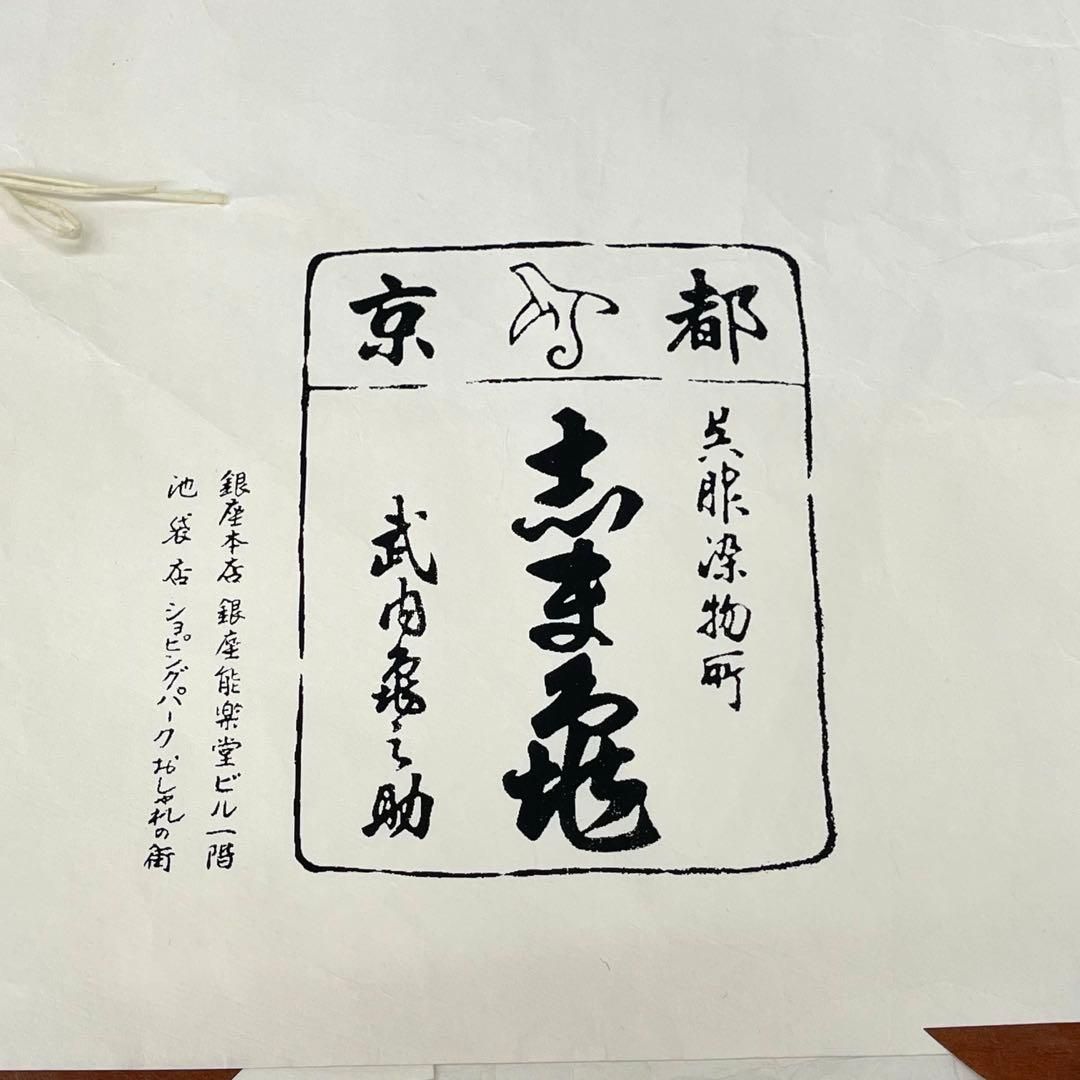 京都
呉服染物所
志ま亀
武内亀之助
銀座本店 銀座能楽堂ビル一階
池袋店 ショピングパークおしゃれの街